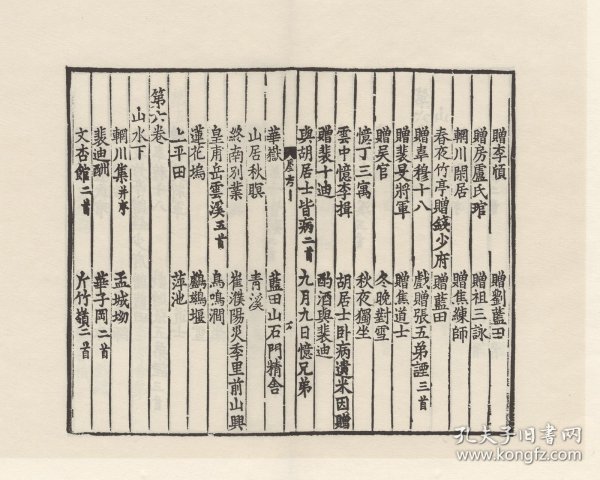 贈李頎 贈劉藍田
贈房盧氏琯 贈祖三詠
輞川閒居 贈焦練師
春夜竹亭贈錢少府 贈藍田
贈韋穆十八 戲贈張五弟諲三首
贈裴旻將軍 贈焦道士
贈吳官 冬晚對雪
憶丁三寓 秋夜獨坐
雲中憶李揖 胡居士卧病遺米因贈
贈裴十迪 酌酒與裴迪
與胡居士皆病二首 九月九日憶兄弟
華嶽 藍田山石門精舍
山居秋暝 青溪
終南別業 崔濮陽兄季里前山興
皇甫岳雲溪五首 鳥鳴澗
蓮花塢 鸕鷀堰
上平田 萍池
第六卷
山水下
輞川集并序 孟城坳
裴迪酬 華子岡二首
文杏館二首 斤竹嶺二首
孔夫子旧书网
www.kongfz.com